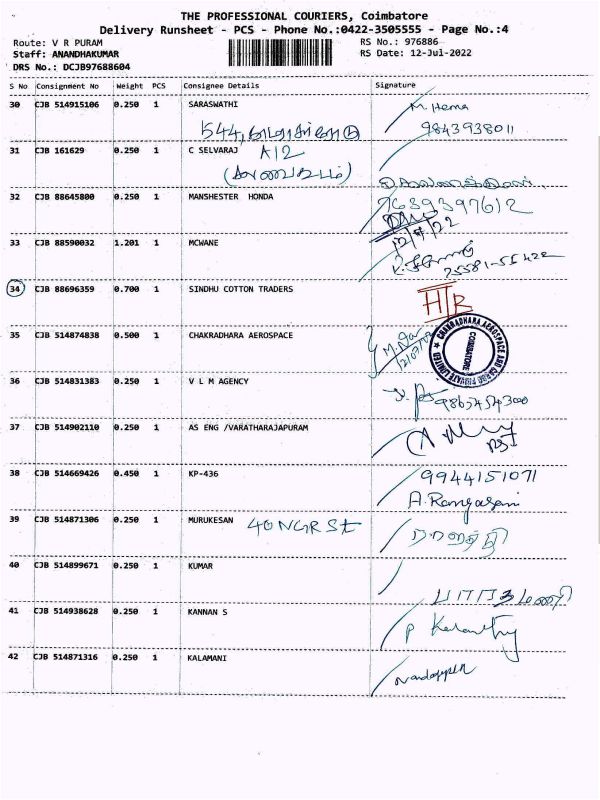 THE PROFESSIONAL COURIERS, Coimbatore
Delivery Runsheet - PCS - Phone No.:0422-3505555 - Page No.:4
Route: V R PURAM RS No.: 976886
Staff: ANANDHAKUMAR RS Date: 12-Jul-2022
DRS No.: DCJB97688604
S No Consignment No Weight PCS Consignee Details Signature
30 CJB 514915106 0.250 1 SARASWATHI M. Hema
544, 9843938011
31 CJB 161629 0.250 1 C SELVARAJ A12
32 CJB 88645800 0.250 1 MANSHESTER HONDA 9639397612
12/7/22
33 CJB 88590032 1.201 1 MCWANE
34 CJB 88696359 0.700 1 SINDHU COTTON TRADERS
35 CJB 514874838 0.500 1 CHAKRADHARA AEROSPACE
CHAKRADHARA AEROSPACE AND CARGO PRIVATE LIMITED
COIMBATORE
36 CJB 514831383 0.250 1 V L M AGENCY
37 CJB 514902110 0.250 1 AS ENG /VARATHARAJAPURAM
38 CJB 514669426 0.450 1 KP-436 9944151071
A. Rangasami
39 CJB 514871306 0.250 1 MURUKESAN 40 NGR St
40 CJB 514899671 0.250 1 KUMAR
41 CJB 514938628 0.250 1 KANNAN S
42 CJB 514871316 0.250 1 KALAMANI